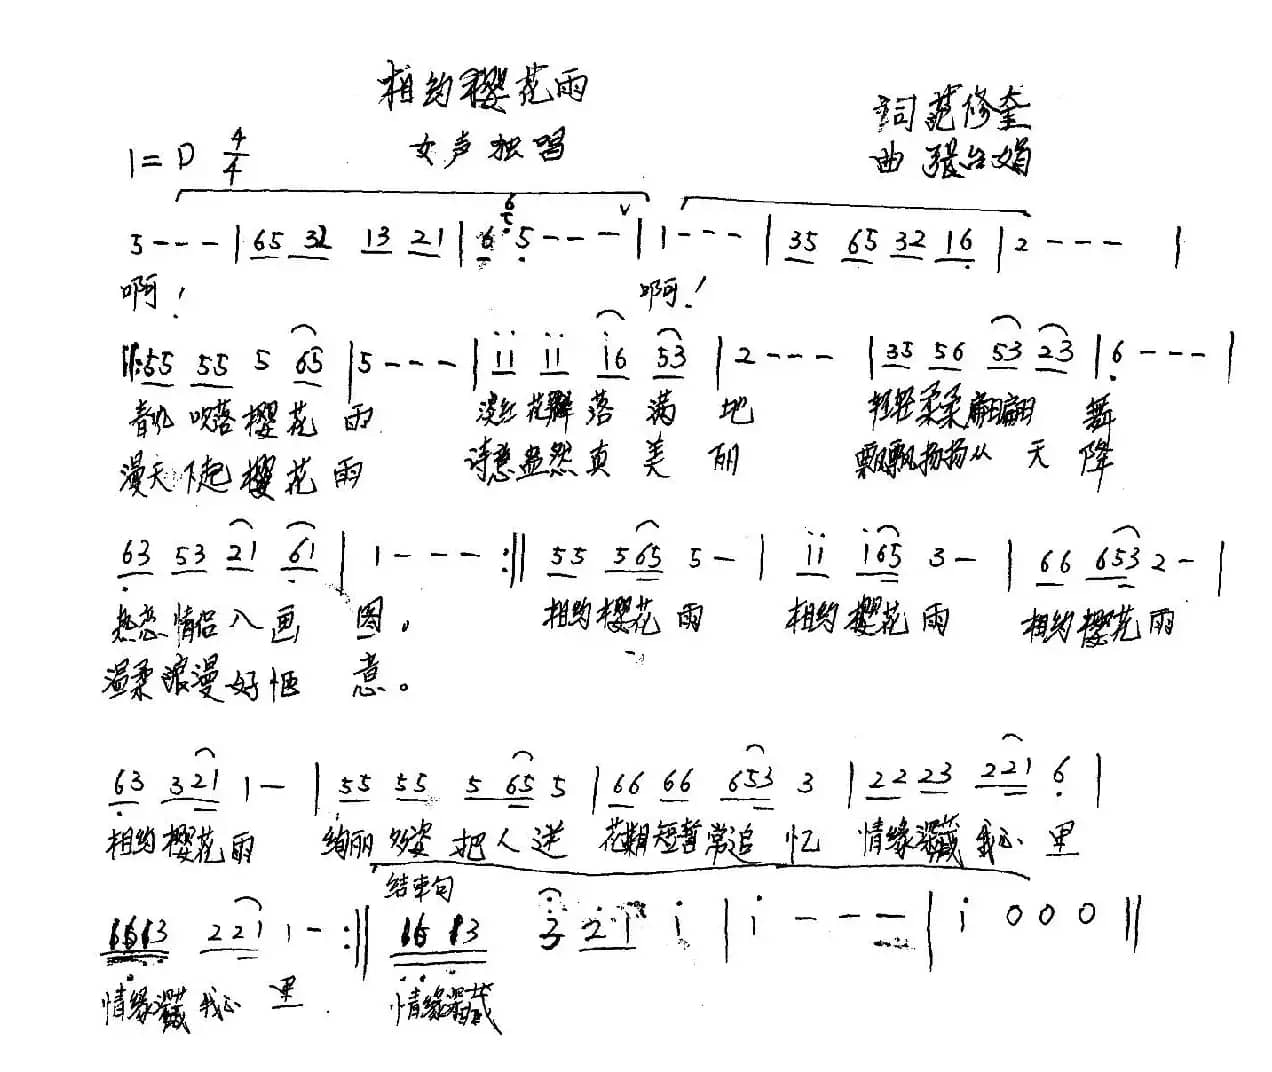 相约樱花雨
女声独唱
词 范修奎
曲 张
1=D 4/4
5 - - - | 65 32 13 21 | 6 5 - - - ∨ | 1 - - - | 35 65 32 16 | 2 - - - |
啊！ 啊！
‖: 55 55 5 65 | 5 - - - | i i i i i6 53 | 2 - - - | 35 56 53 23 | 6 - - - |
春风吹落樱花雨 淡红花瓣落满地 轻轻柔柔翩翩舞
漫天下起樱花雨 诗意盎然真美丽 飘飘扬扬从天降
63 53 21 61 | 1 - - - :‖ 55 565 5 - | i i i65 3 - | 66 653 2 - |
热恋情侣入画图。 相约樱花雨 相约樱花雨 相约樱花雨
温柔浪漫好惬意。
63 321 1 - | 55 55 5 65 5 | 66 66 653 3 | 22 23 221 6 |
相约樱花雨 绚丽多姿把人迷 花期短暂常追忆 情缘深藏我心里
结束句
6613 221 1 - :‖ 16 13 3 2 i i | i - - - | i 0 0 0 ‖
情缘深藏我心里 情缘深藏